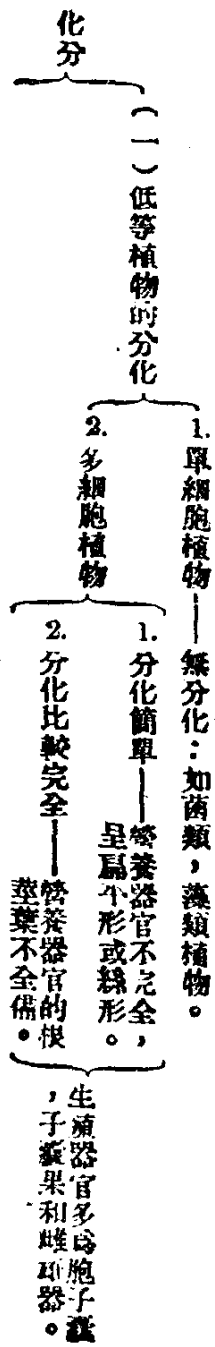 化分
（一）低等植物的分化
1. 單細胞植物——無分化：如菌類，藻類植物。
2. 多細胞植物
1. 分化簡單——營養器官不完全，
呈扁平形或絲形。
2. 分化比較完全——營養器官的根
莖葉不全備。
生殖器官多爲胞子囊
，子囊果和雌雄器。